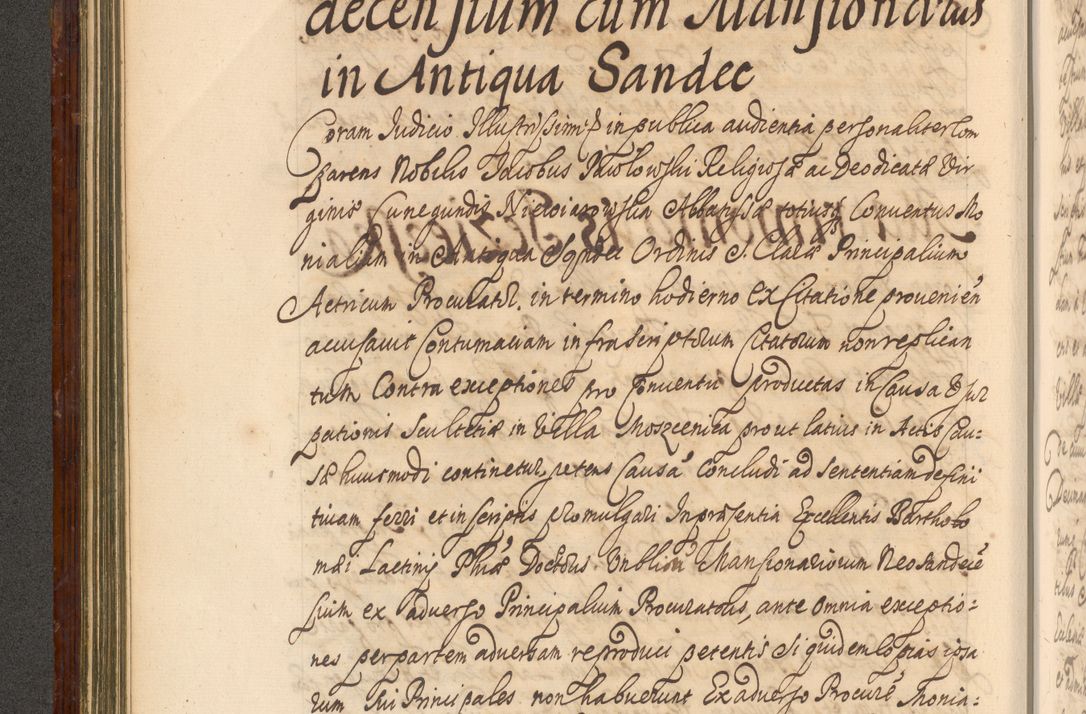 decensium cum Mansionariis
in Antiqua Sandec
Coram Judicio Illustrissimi in publica audientia personaliter Com
parens Nobilis Jacobus Pawłowski Religiosæ ac Deodicatæ Vir
ginis Cunegundis Niewiarowska Abbatissæ totiusq Conventus Mo
nialium in Antiqua Sandec Ordinis S. Claræ Principalium
Actricum Procurator. in termino hodierno ex Citatione provenien
accusavit Contumaciam infrascriptorum Citatorum non replican
tum Contra exceptiones pro Conventu productas in Causa Usur
pationis Scultetiæ in Villa Moszcenica prout latius in Actis Cau-
sæ huiusmodi continetur petens Causã Concludi ad Sententiam defini
tivam ferri et in scriptis promulgari In præsentia Excellentis Bartholo
mæi Lactinij Phiæ Doctoris Mansionariorum Neosandecẽ
sium ex adverso Principalium Procuratoris, ante omnia exceptio-
nes per partem adversam reproduci petentis Siquidem Copias ipsa
rum Sui Principales non habuerunt Ex adverso Procurẽ Monia-